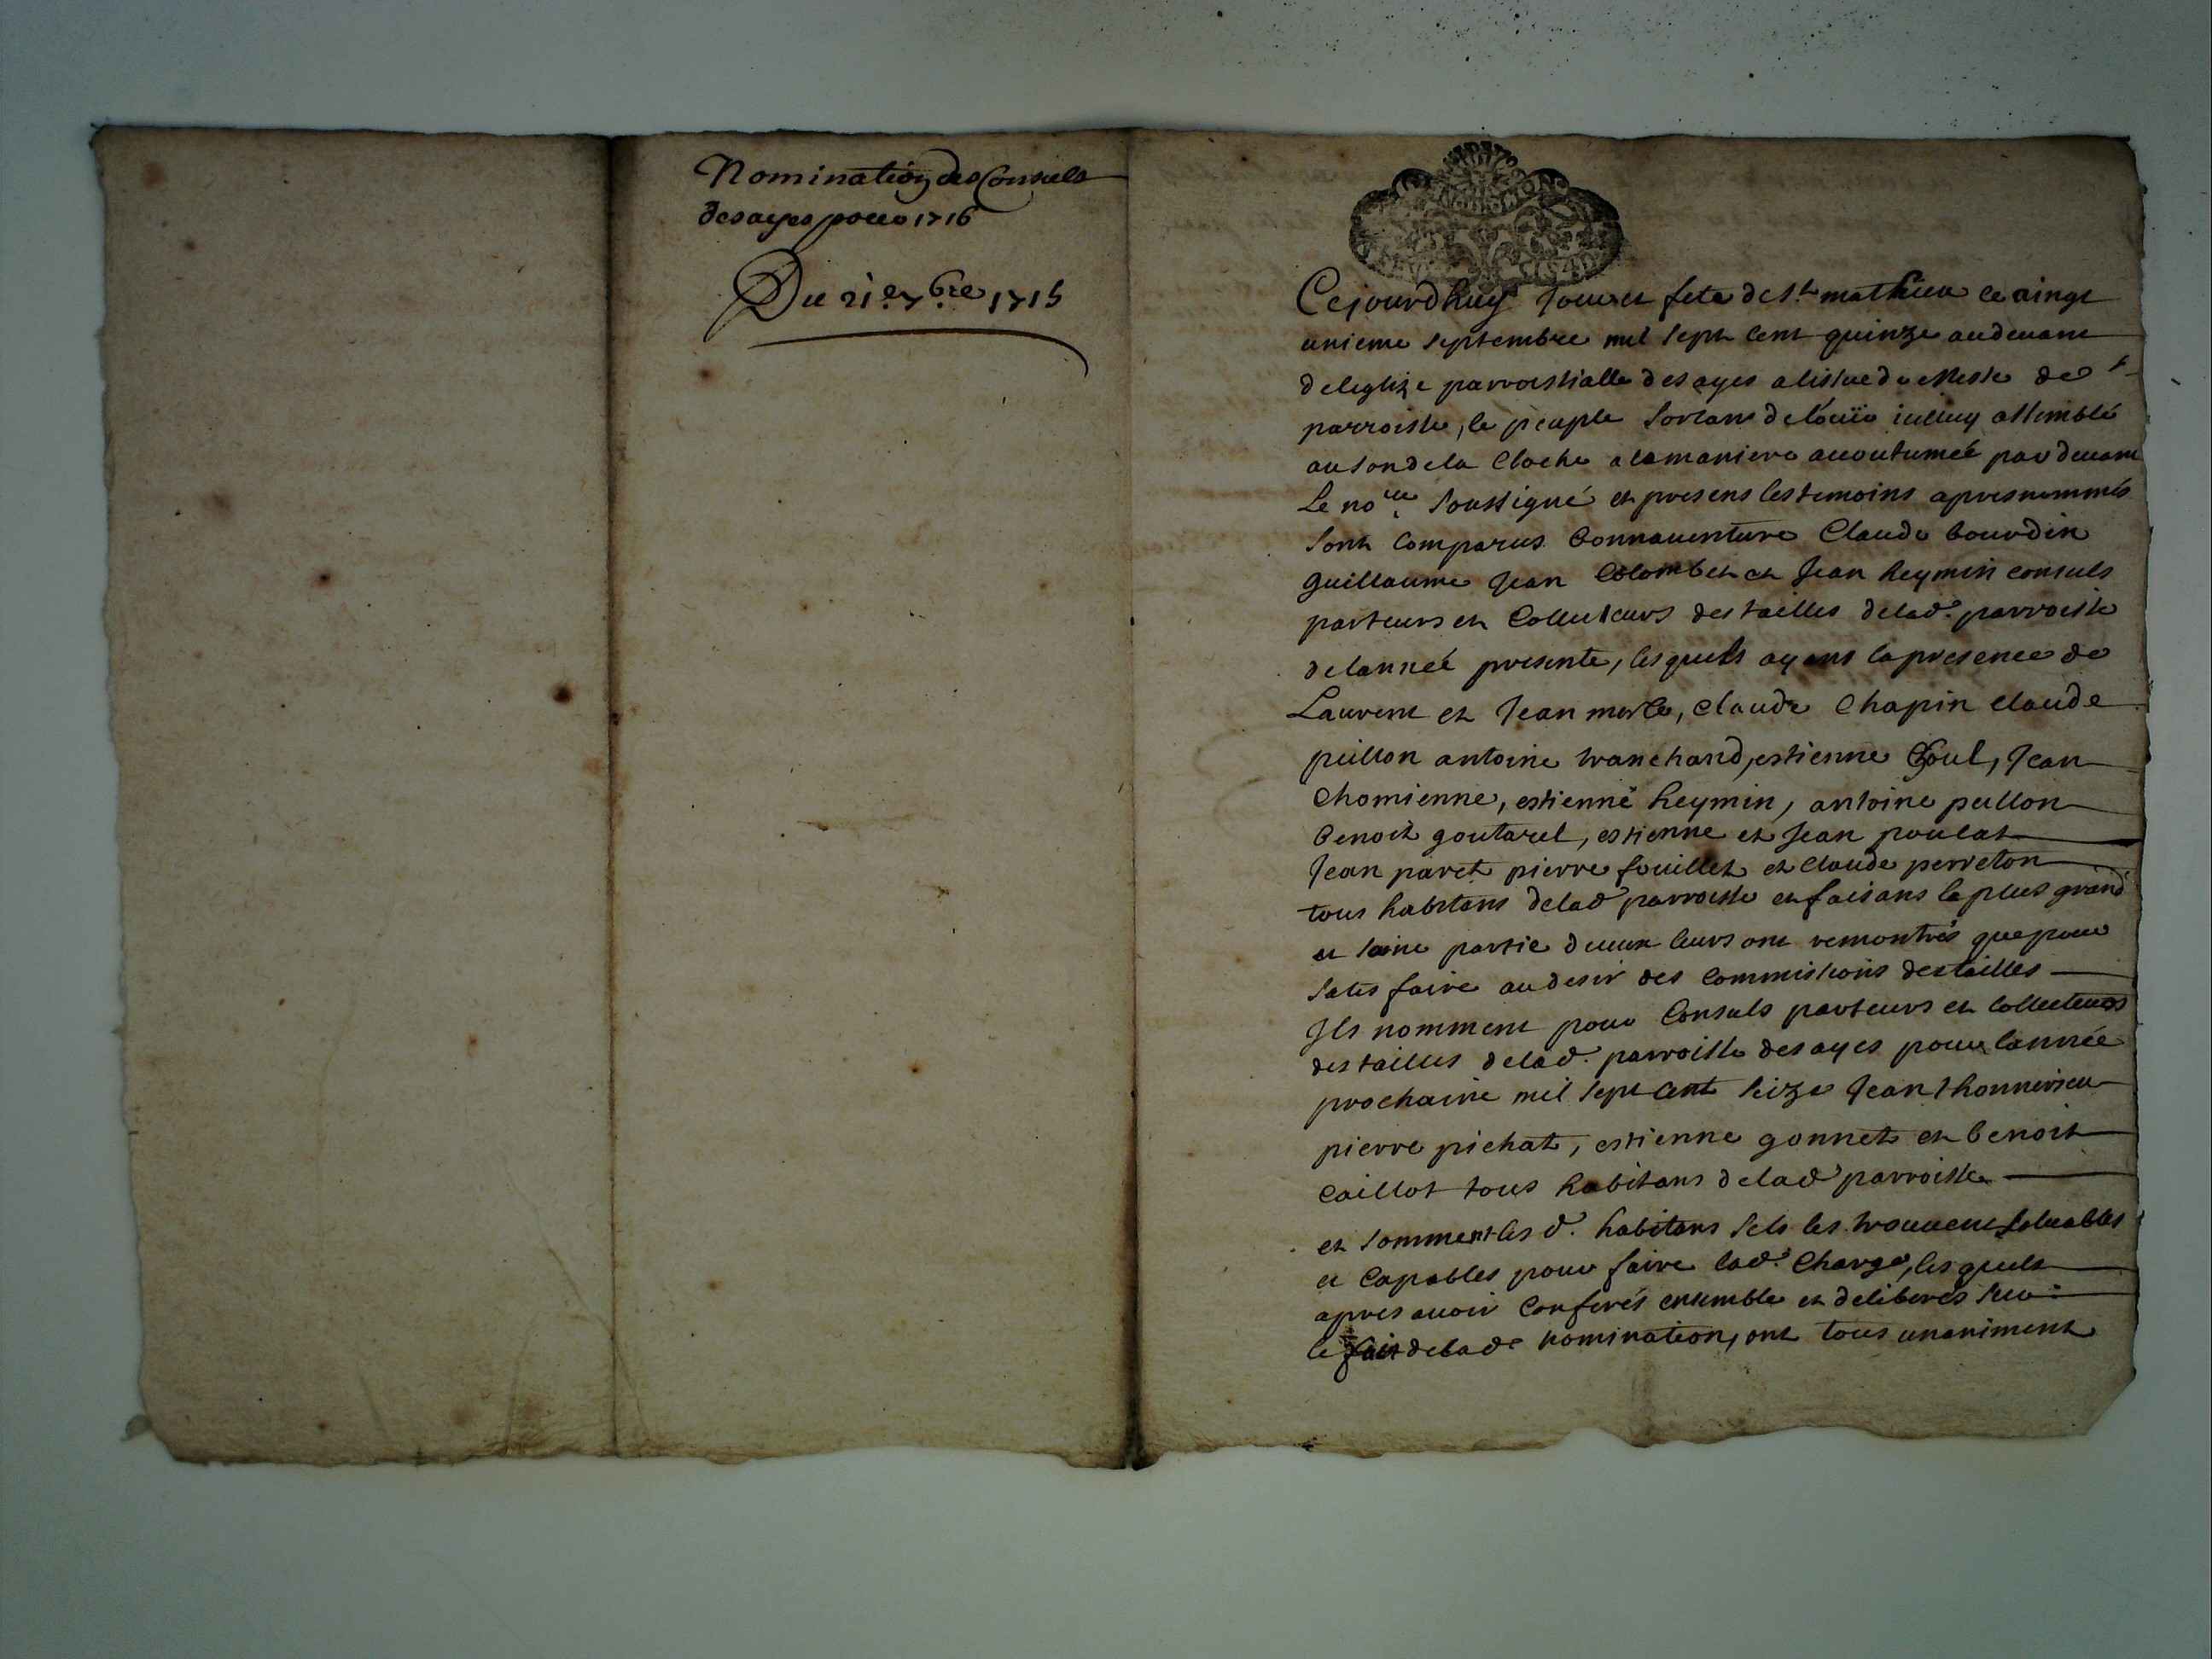 Nomination des Consuls
des ayes pour 1716
Du 21e 7bre 1715
Cejourdhuy jour et fete de st mathieu ce vingt
unieme septembre mil sept cent quinze audevant
deleglize parroissialle des ayes alissue de messe de
parroisse, le peuple sortant assemblé
au son de la Cloche a la maniere accoutumée pardevant
Le nore soussigné et presens les temoins apres nommés
sont Comparus bonnaventure Claude bourdin
guillaume Jean Colombet et Jean heymin consuls
parteurs et Collecteurs des tailles delad. parroisse
delannée presente, lesquels ayans la presence de
Laurent et Jean merle, claude Chapin claude
peillon antoine tranchand, estienne Jean
Chomienne, estienne heymin, antoine peillon
benoit goutarel, estienne et Jean poulat
Jean paret pierre fouillet et claude perreton
tous habitans delad parroisse et faisans la plus grand
et saine partie diceux leurs ont remontrés que pour
satisfaire au desir des commissions des tailles
Ils nomment pour Consuls parteurs et collecteurs
des tailles delad. parroisse des ayes pour lannée
prochaine mil sept cent seize Jean thonnerieu
pierre pichat, estienne gonnet et benoit
caillot tous habitans delad parroisse
et somment les d. habitans sils les trouvent solvables
et capables pour faire lad. Charge, lesquels
apres avoir Conferés ensemble et deliberés sur
le fait de lade nomination, ont tous unaniment